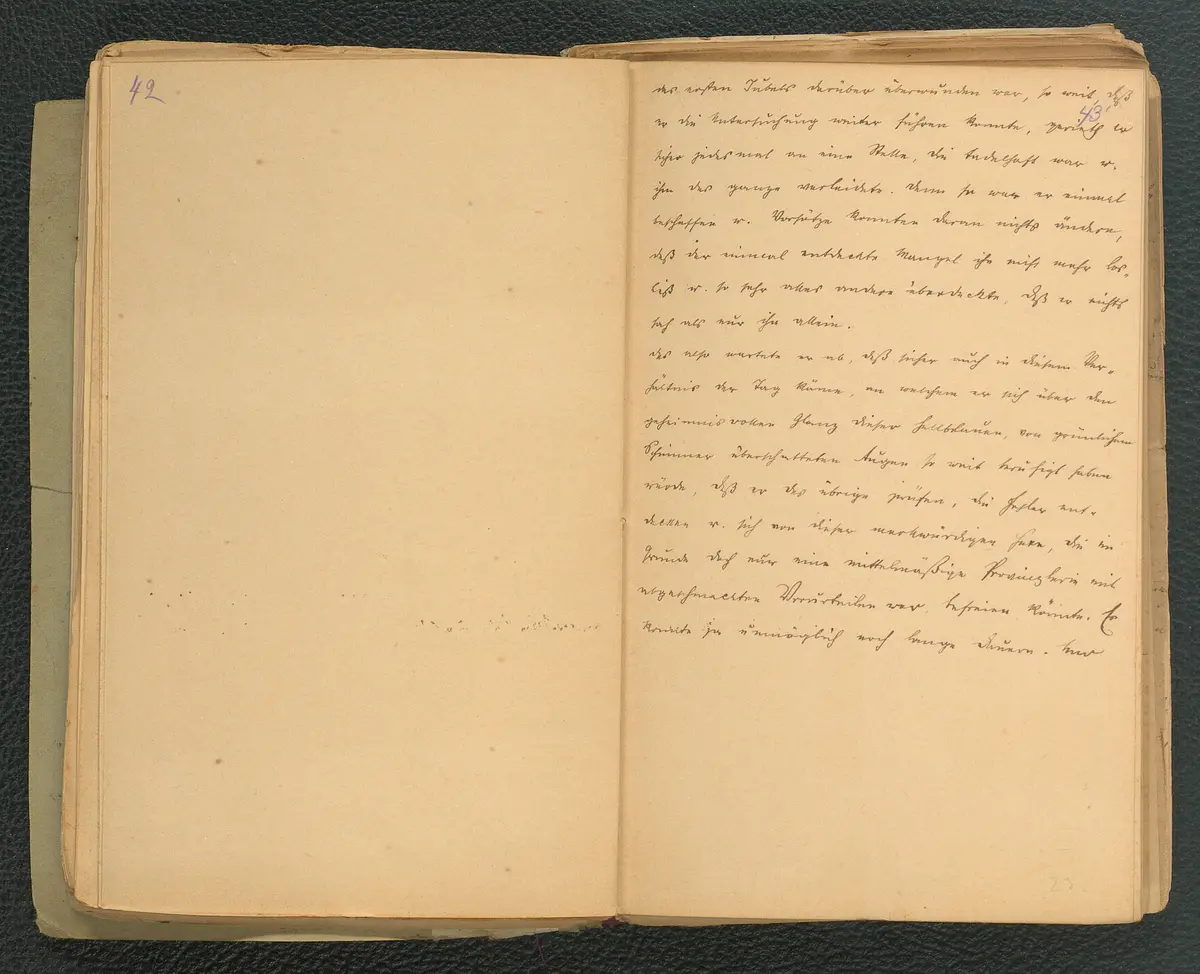 42
des ersten Jubels darüber überwunden war, so weit, daß
43
er die Untersuchung weiter führen konnte, gerieth er
sicher jedesmal an eine Stelle, die tadelhaft war u.
ihm das ganze verleidete. Denn so war er einmal
beschaffen u. Vorsätze konnten daran nichts ändern,
daß der einmal entdeckte Mangel ihn nicht mehr los-
ließ u. so sehr alles andere überdeckte, daß er nichts
sah als nur ihn allein.
Das also wartete er ab, daß sicher auch in diesem Ver-
hältnis der Tag käme, an welchem er sich über den
geheimnisvollen Glanz dieser hellblauen, von grünlichem
Schimmer überschatteten Augen so weit beruhigt haben
würde, daß er das übrige prüfen, die Fehler ent-
decken u. sich von dieser merkwürdigen Hexe, die im
Grunde doch nur eine mittelmäßige Provinzlerin mit
abgeschmackten Vorurteilen war, befreien könnte. Es
konnte ja unmöglich noch lange dauern. Und
23